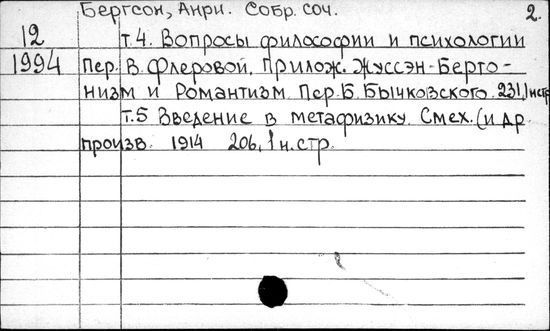 Бергсон, Анри. Собр. соч. 2.
12 т.4. Вопросы философии и психологии
1994 Пер. В. Флеровой. Прилож. Жуссэн-Бергсо-
низм и Романтизм. Пер. Б. Бычковского. 231, 1 нстр
т.5 Введение в метафизику. Смех. (и др.
произв. 1914 206, 1 н. стр.